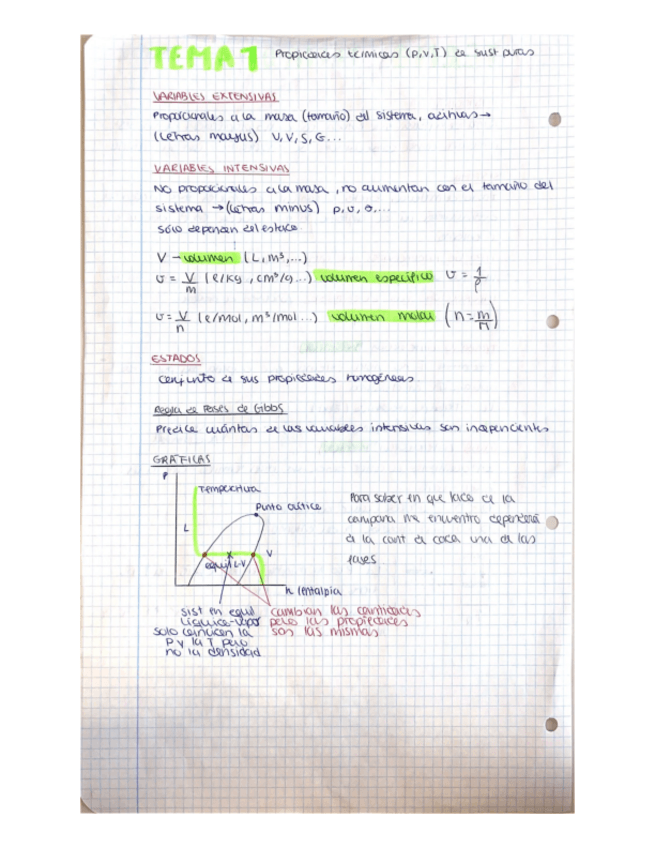 TEMA 1 Propiedades térmicas (p,v,T) de sust puras
VARIABLES EXTENSIVAS
Proporcionales a la masa (tamaño) del sistema, aditivas →
(Letras mayus) U, V, S, G...
VARIABLES INTENSIVAS
No proporcionales a la masa, no aumentan con el tamaño del
sistema → (Letras minus) p, v, θ,...
sólo dependen del estado
V - volumen (L, m³,...)
v = V/m (l/kg, cm³/g...) volumen específico v = 1/ρ
v = V/n (l/mol, m³/mol...) volumen molar (n = m/M)
ESTADOS
conjunto de sus propiedades homogéneas
Regla de Fases de Gibbs
Predice cuántas de las variables intensivas son independientes
GRÁFICAS
P
Temperatura
Punto crítico
L
V
equil L-V
h (entalpia)
Para saber en que lado de la
campana me encuentro dependerá
d la cant d cada una d las
fases
sist en equil
líquido-vapor
solo coinciden la
P y la T pero
no la densidad
cambian las cantidades
pero las propiedades
son las mismas